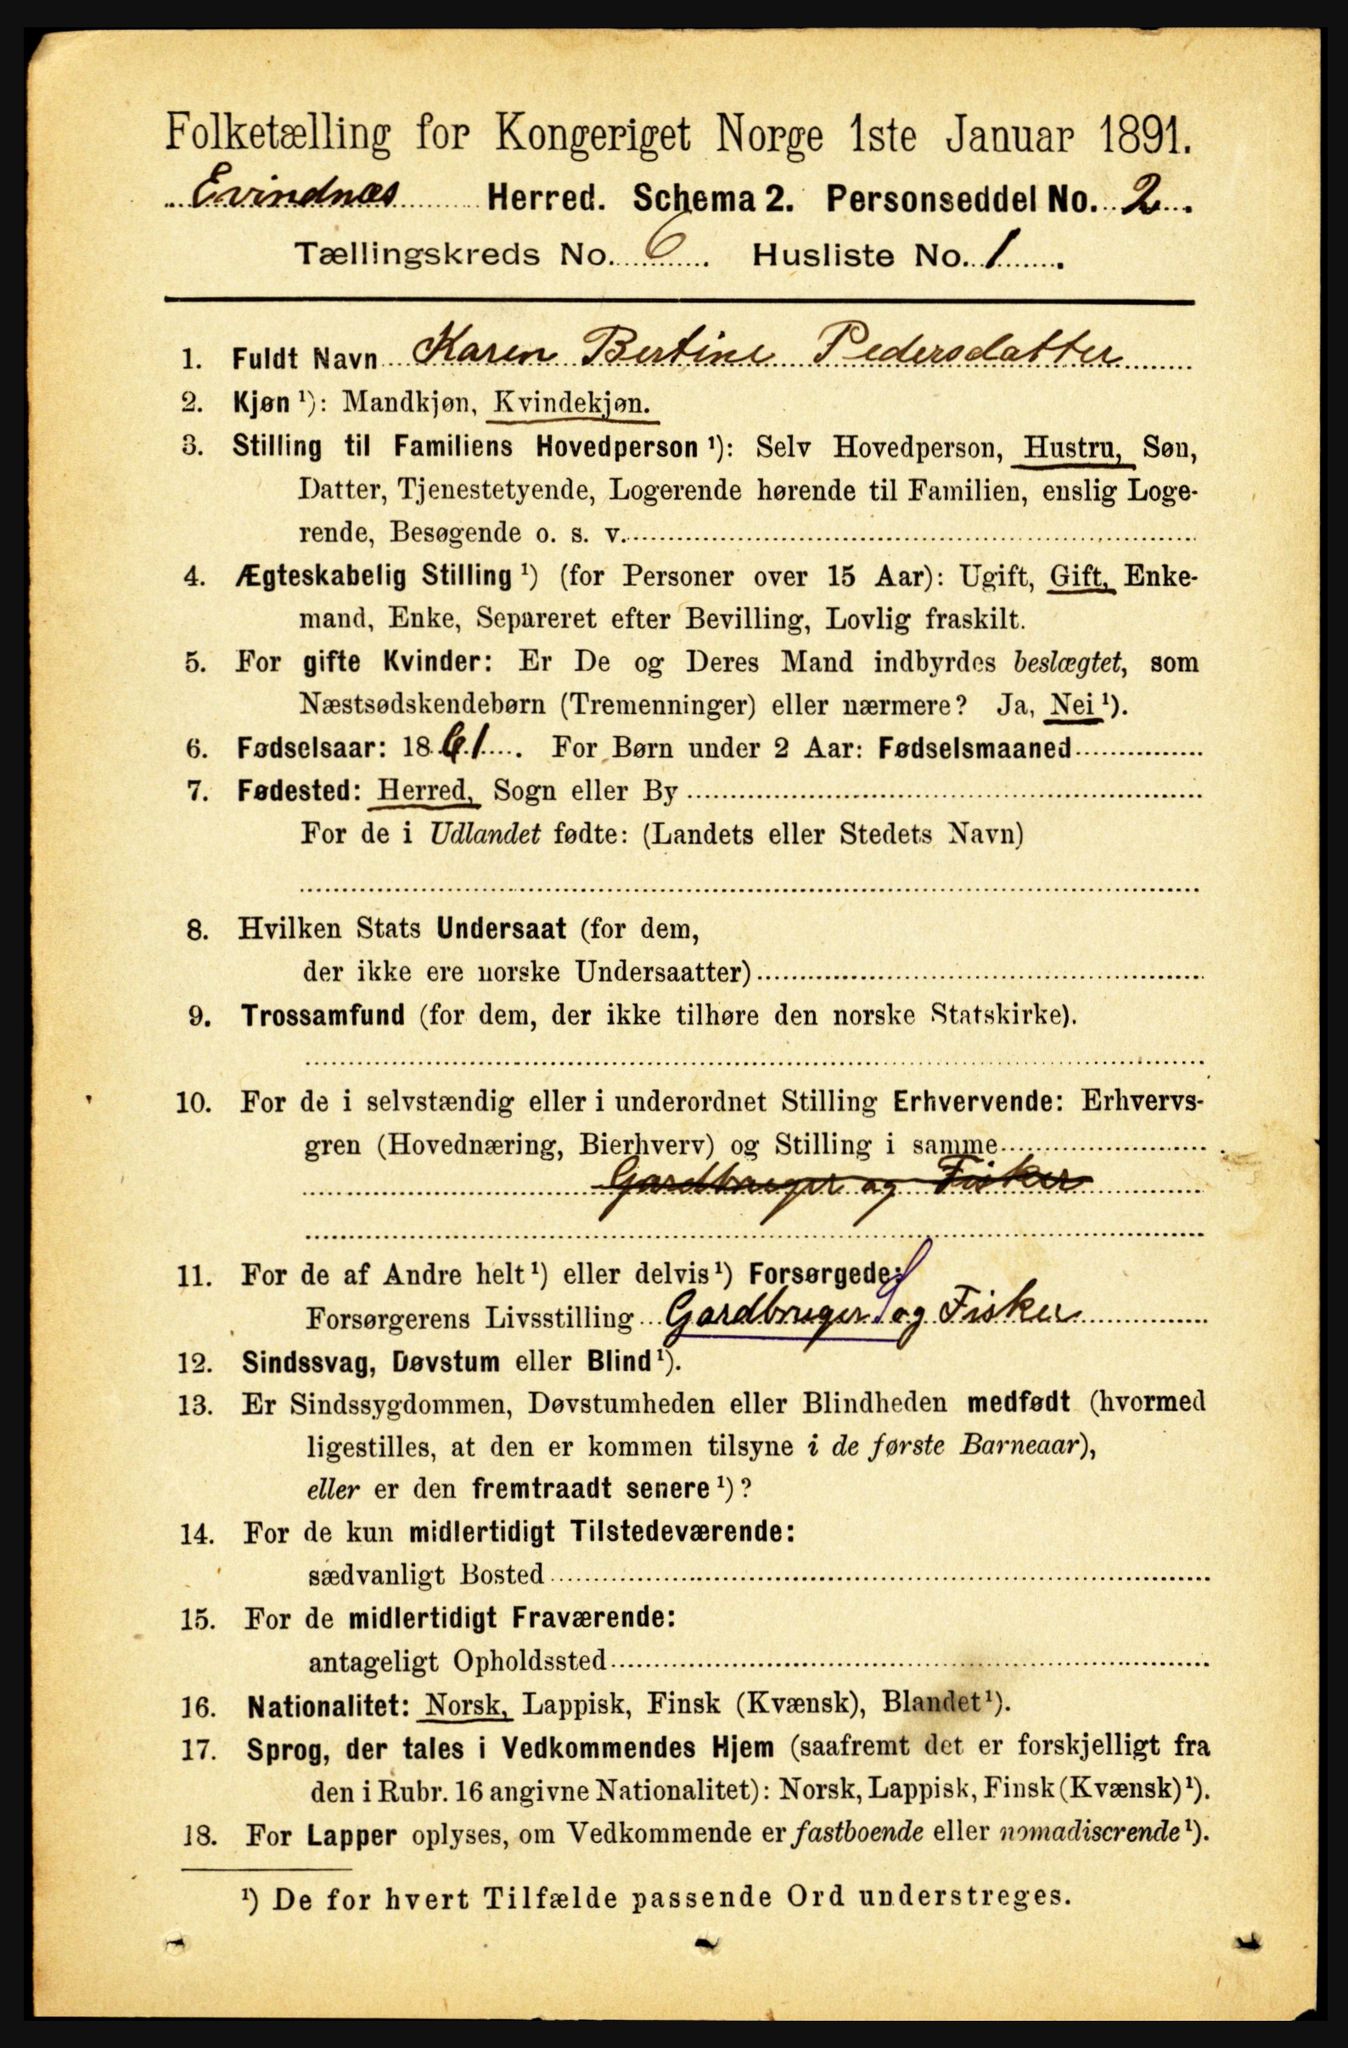 Folketælling for Kongeriget Norge 1ste Januar 1891.
Evindnæs Herred. Schema 2. Personseddel No. 2.
Tællingskreds No. 6. Husliste No. 1.
1. Fuldt Navn Karen Bertine Pedersdatter
2. Kjøn ¹): Mandkjøn, Kvindekjøn.
3. Stilling til Familiens Hovedperson ¹): Selv Hovedperson, Hustru, Søn,
Datter, Tjenestetyende, Logerende hørende til Familien, enslig Loge-
rende, Besøgende o. s. v.
4. Ægteskabelig Stilling ¹) (for Personer over 15 Aar): Ugift, Gift, Enke-
mand, Enke, Separeret efter Bevilling, Lovlig fraskilt.
5. For gifte Kvinder: Er De og Deres Mand indbyrdes beslægtet, som
Næstsødskendebørn (Tremenninger) eller nærmere? Ja, Nei ¹).
6. Fødselsaar: 1861. For Børn under 2 Aar: Fødselsmaaned
7. Fødested: Herred, Sogn eller By
For de i Udlandet fødte: (Landets eller Stedets Navn)
8. Hvilken Stats Undersaat (for dem,
der ikke ere norske Undersaatter)
9. Trossamfund (for dem, der ikke tilhøre den norske Statskirke).
10. For de i selvstændig eller i underordnet Stilling Erhvervende: Erhvervs-
gren (Hovednæring, Bierhverv) og Stilling i samme
Gardbruger og Fisker
11. For de af Andre helt ¹) eller delvis ¹) Forsørgede:
Forsørgerens Livsstilling Gardbruger og Fisker
12. Sindssvag, Døvstum eller Blind ¹).
13. Er Sindssygdommen, Døvstumheden eller Blindheden medfødt (hvormed
ligestilles, at den er kommen tilsyne i de første Barneaar),
eller er den fremtraadt senere ¹)?
14. For de kun midlertidigt Tilstedeværende:
sædvanligt Bosted
15. For de midlertidigt Fraværende:
antageligt Opholdssted
16. Nationalitet: Norsk, Lappisk, Finsk (Kvænsk), Blandet ¹).
17. Sprog, der tales i Vedkommendes Hjem (saafremt det er forskjelligt fra
den i Rubr. 16 angivne Nationalitet): Norsk, Lappisk, Finsk (Kvænsk) ¹).
18. For Lapper oplyses, om Vedkommende er fastboende eller nomadiserende ¹).
¹) De for hvert Tilfælde passende Ord understreges.